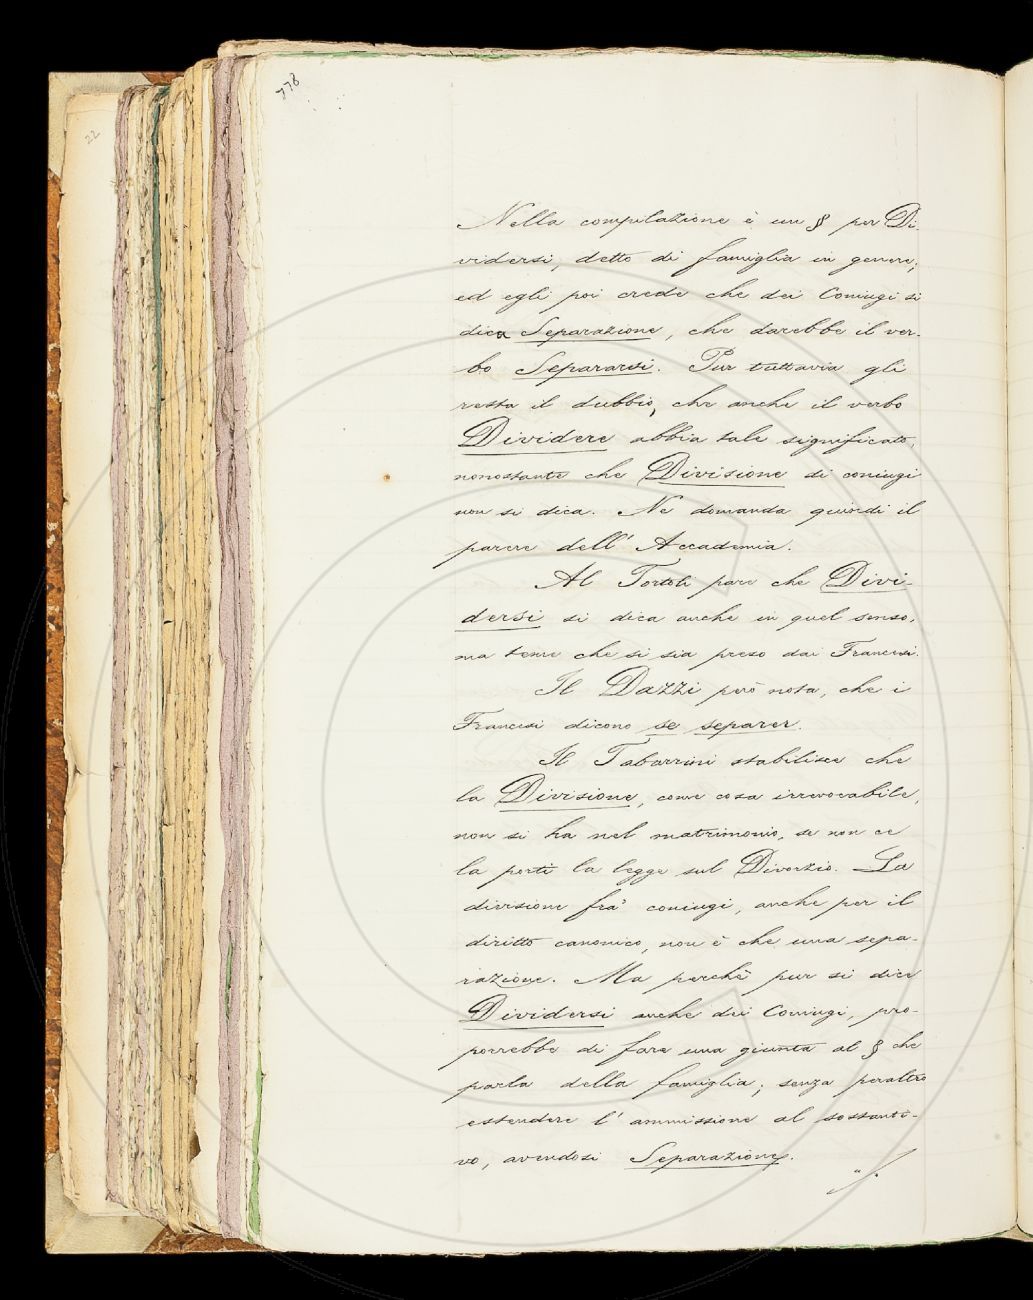 778
22
Nella compilazione è un § per Di
vidersi, detto di famiglia in genere;
ed egli poi crede che dei Coniugi si
dica Separazione, che darebbe il ver-
bo Separarsi. Pur tuttavia gli
resta il dubbio, che anche il verbo
Dividere abbia tale significato,
nonostante che Divisione di coniugi
non si dica. Ne domanda quindi il
parere dell' Accademia.
Al Tortoli pare che Divi-
dersi si dica anche in quel senso,
ma teme che si sia preso dai Francesi.
Il Dazzi però nota, che i
Francesi dicono se separer.
Il Tabarrini stabilisce che
la Divisione, come cosa irrevocabile,
non si ha nel matrimonio, se non ce
la porti la legge sul Divorzio. La
divisione fra' coniugi, anche per il
diritto canonico, non è che una sepa-
razione. Ma perchè pur si dice
Dividersi anche dei Coniugi, pro-
porrebbe di fare una giunta al § che
parla della famiglia; senza peraltro
estendere l' ammissione al sostanti-
vo, avendosi Separazione.